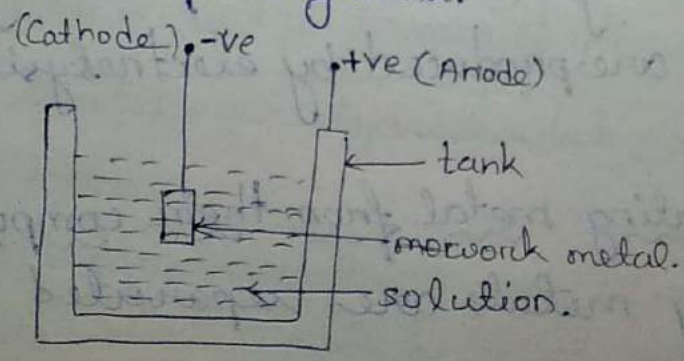 (Cathode) -ve
+ve (Anode)
tank
work metal.
solution.